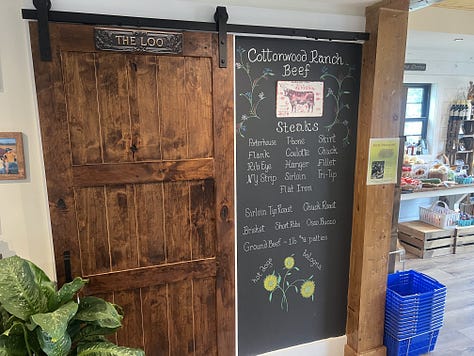 THE LOO
Cottonwood Ranch
Beef
Steaks
Porterhouse Tbone Skirt
Flank Coulotte Chuck
Rib Eye Hanger Fillet
NY Strip Sirloin Tri-Tip
Flat Iron
Sirloin Tip Roast Chuck Roast
Brisket Short Ribs Osso Bucco
Ground Beef - 1lb patties
hot dogs bologna